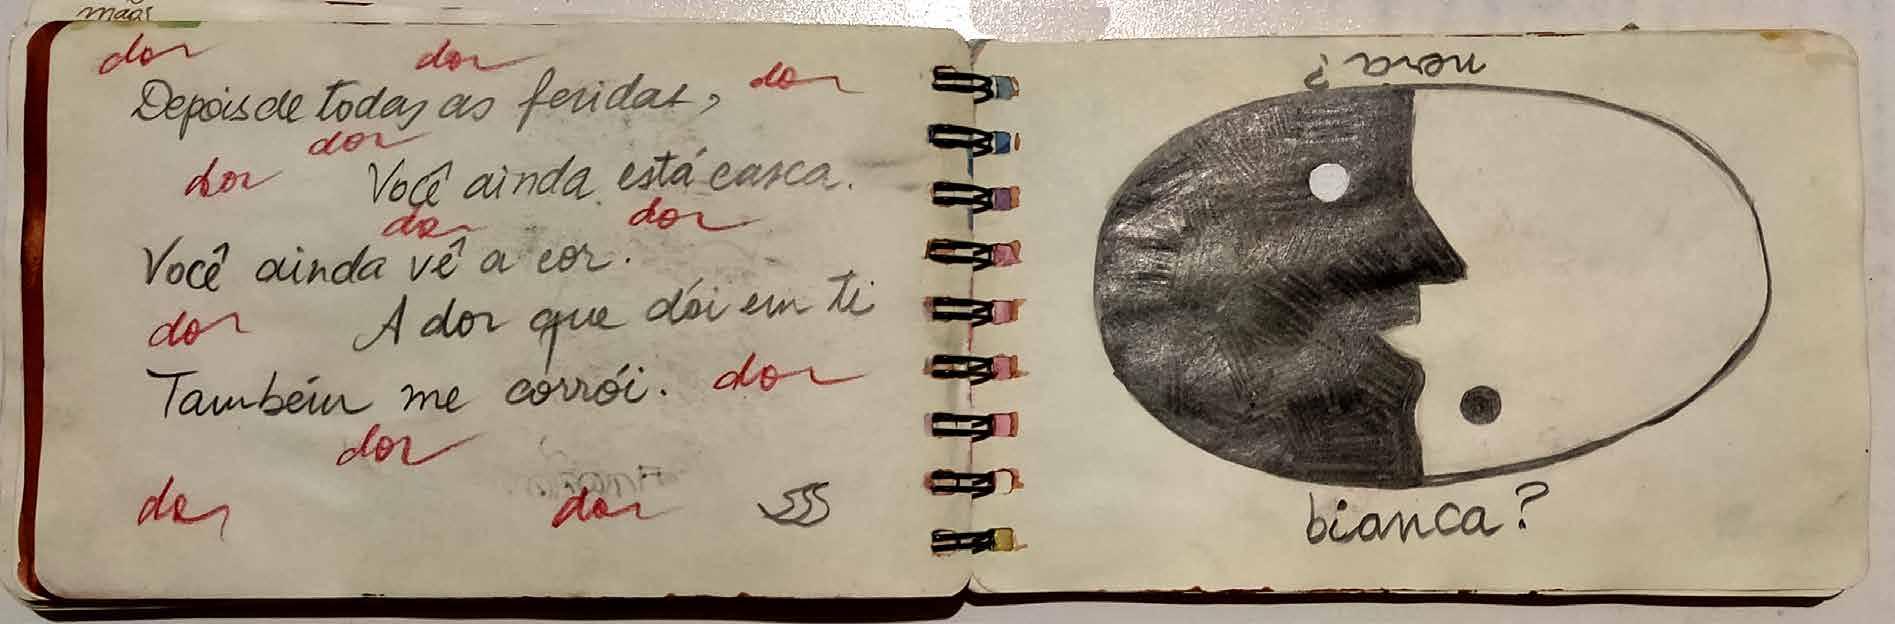 mãos
dor dor dor
Depois de todas as feridas,
dor dor
Você ainda está casca.
dor dor
Você ainda vê a cor.
dor A dor que dói em ti
Também me corrói. dor
dor
dor dor
nera?
bianca?